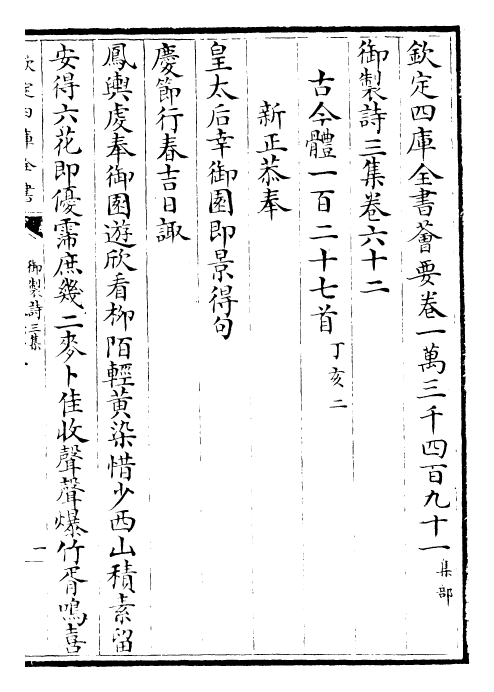 欽定四庫全書薈要卷一萬三千四百九十一集部
御製詩三集卷六十二
古今體一百二十七首丁亥二
新正恭奉
皇太后幸御園即景得句
慶節行春吉日諏
鳳輿虔奉御園遊欣看柳陌輕黄染惜少西山積素留
安得六花即優霈庶幾二麥卜佳收聲聲爆竹胥鳴喜
欽定四庫全書
御製詩三集
一